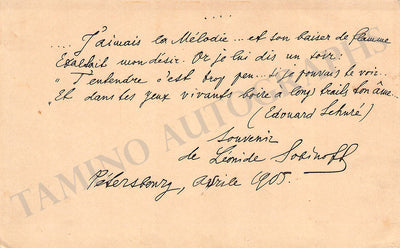 .... J'aimais la Mélodie... et son baiser de flamme
Exaltait mon désir. Or je lui dis un soir:
"T'entendre c'est trop peu... si je pouvais te voir...
Et dans tes yeux vivants boire à longs traits ton âme...
(Edouard Schuré)
Souvenir
de Léonide Sobinoff
Pétersbourg, Avrile 1905.
TAMINO AUTOGRAPHS